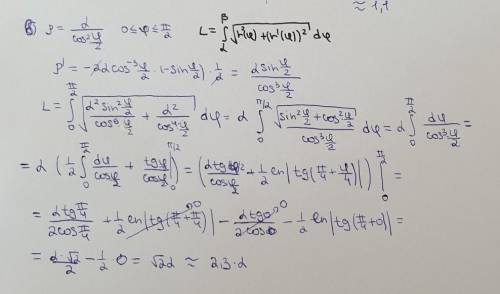 ≈ 1,1
б) ρ = α / cos² φ/2    0 ≤ φ ≤ π/2    L = ∫_α^β √(r²(φ) + (r'(φ))²) dφ
ρ' = -2α cos⁻³ φ/2 · (-sin φ/2) · 1/2 = α sin φ/2 / cos³ φ/2
L = ∫_0^{π/2} √(α² sin² φ/2 / cos⁶ φ/2 + α² / cos⁴ φ/2) dφ = α ∫_0^{π/2} √(sin² φ/2 + cos² φ/2) / cos³ φ/2 dφ = α ∫_0^{π/2} dφ / cos³ φ/2 =
= α (1/2 ∫_0^{π/2} dφ / cos φ/2 + tg φ/2 / cos φ/2 |_0^{π/2}) = (α tg φ/2 / cos φ/2 + 1/2 ln|tg(π/4 + φ/4)|) |_0^{π/2} =
= α tg π/4 / 2cos π/4 + 1/2 ln|tg(π/4 + π/4)| - α tg 0 / 2cos 0 - 1/2 ln|tg(π/4 + 0)| =
= α·√2 / 2 - 1/2 0 = √2α ≈ 2,3·α